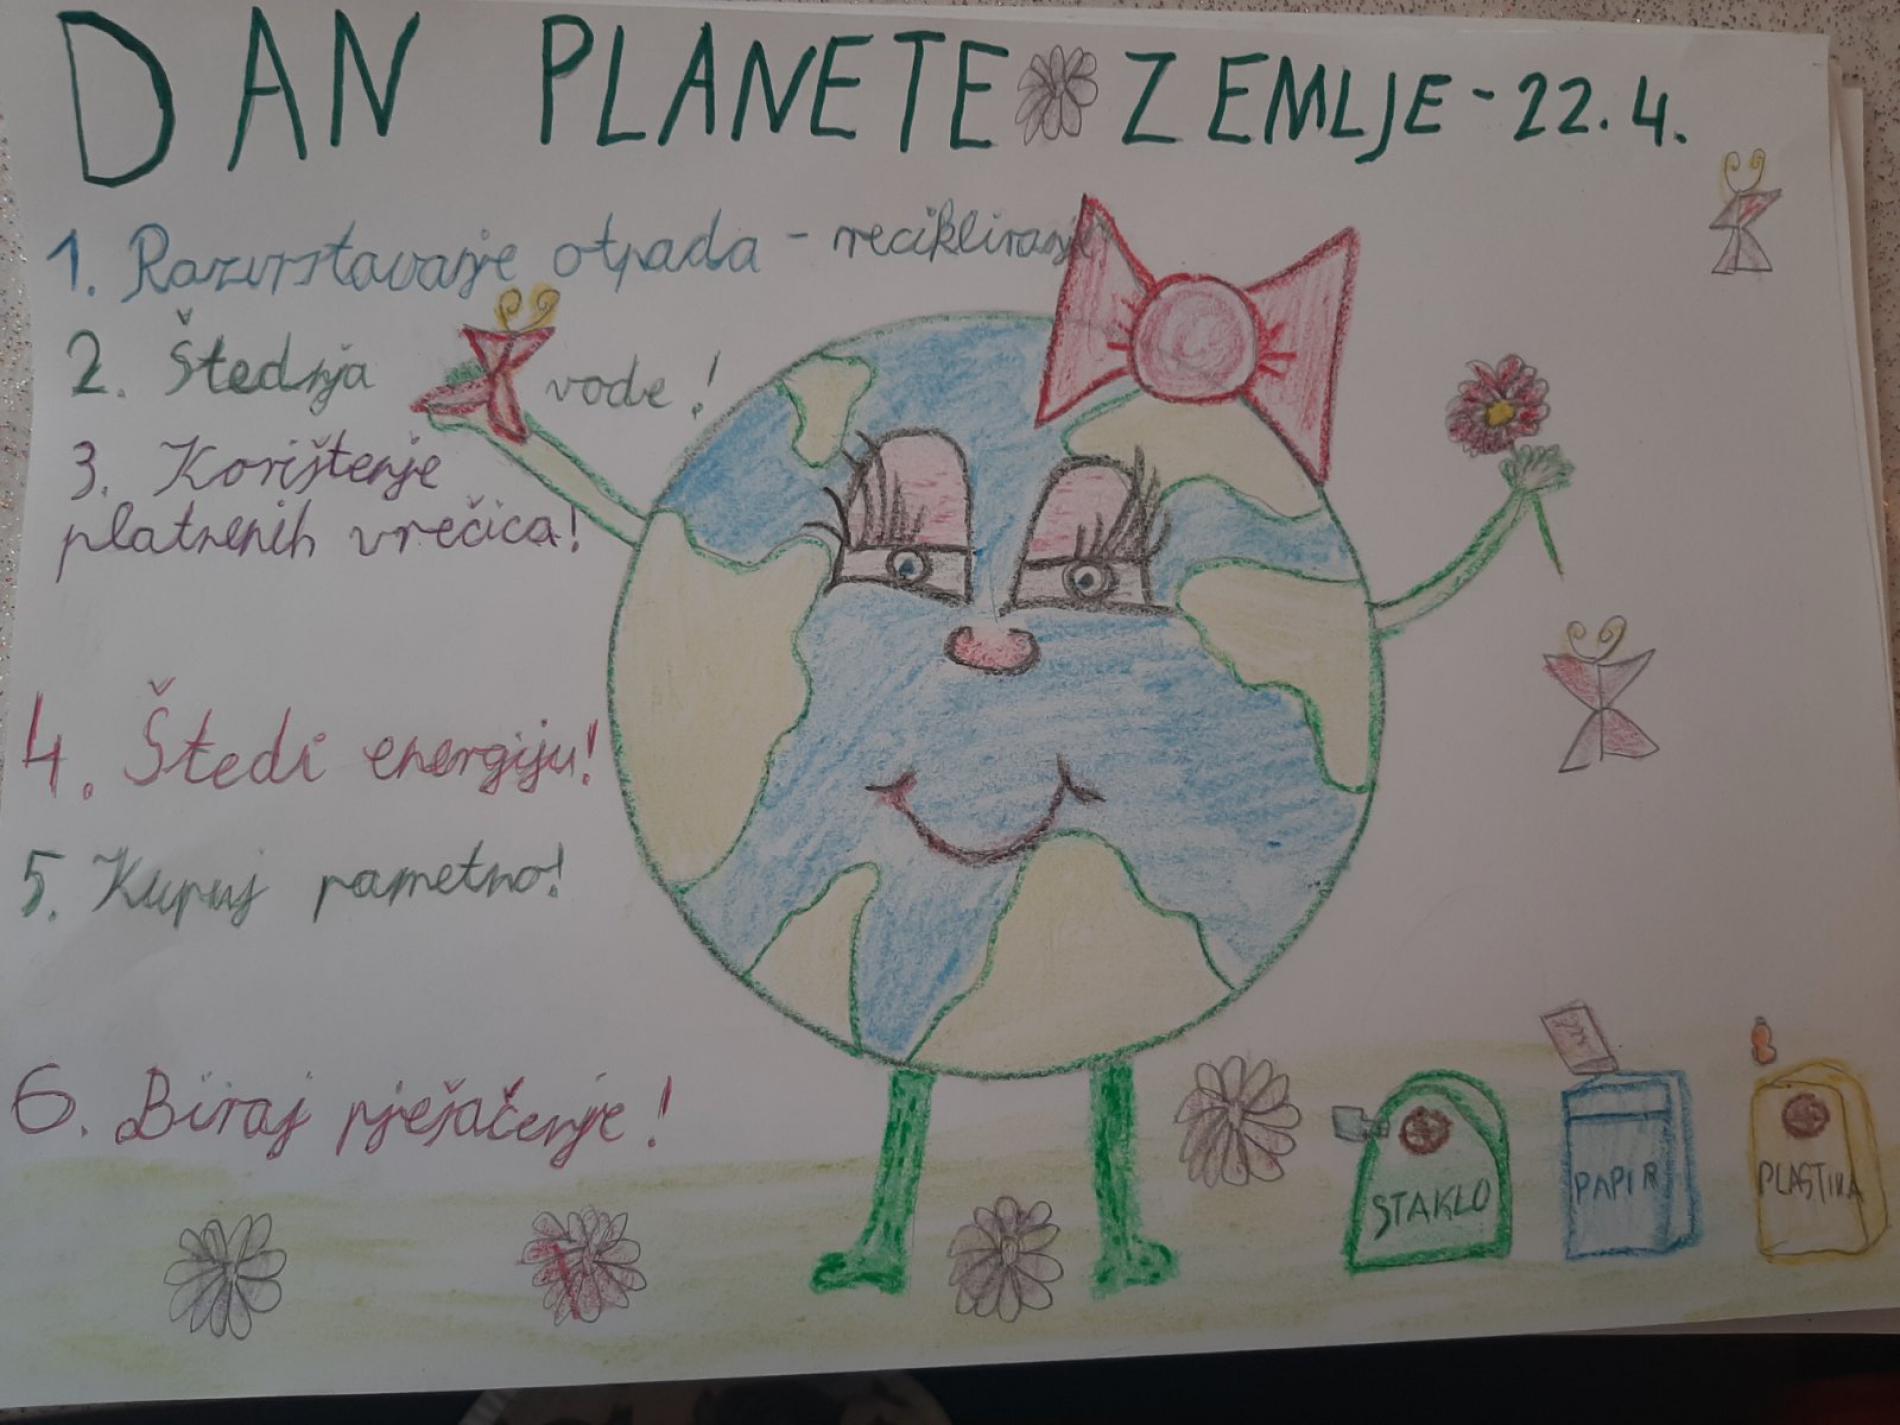 DAN PLANETE ZEMLJE - 22.4.
1. Razvrstavanje otpada - recikliranje
2. Štednja vode!
3. Korištenje
platnenih vrečica!
4. Štedi energiju!
5. Kupuj pametno!
6. Biraj pješačenje!
STAKLO
PAPIR
PLASTIKA